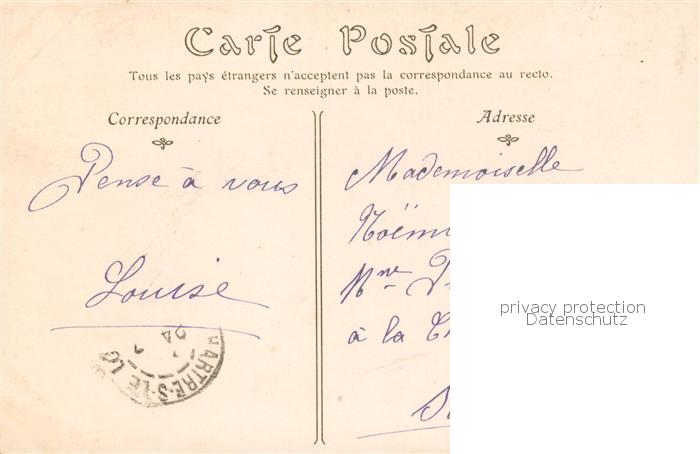 Carte Postale
Tous les pays étrangers n'acceptent pas la correspondance au recto.
Se renseigner à la poste.
Correspondance
Adresse
Pense à vous
Louise
Mademoiselle
à la
privacy protection
Datenschutz
04